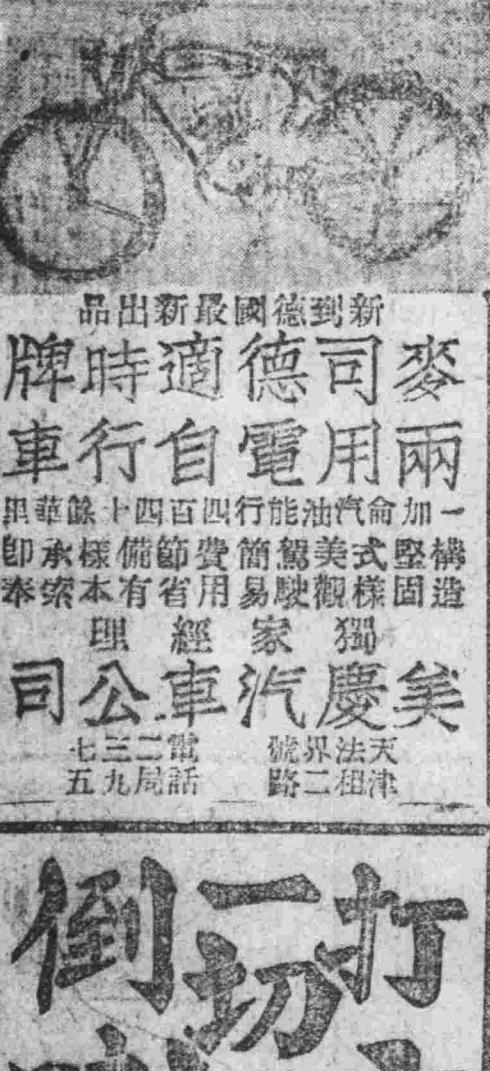 新到德國最新出品
麥司德適時牌
兩用電自行車
一加侖汽油能行四百四十餘華里
構造堅固式樣美觀駕駛簡易費用節省備有樣本承索卽奉
獨家經理
美慶汽車公司
天津法租界二號路
電話二局三九七五
打
一切
倒